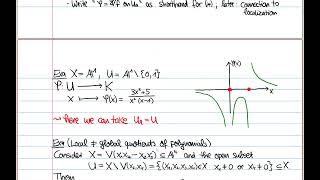 - Write "φ = g/f on Ua" as shorthand for (*), later: connection to localization
Exa X = A¹, U = A¹ \ {0,1}
φ: U → K
x ↦ φ(x) = 3x²+5 / x²(x-1)
φ(x)
x
→ Here we can take Ua = U
Exa (Local ≠ global quotients of polynomials)
Consider X = V(x₁x₄ - x₂x₃) ⊆ A⁴ and the open subset
U = X \ V(x₂,x₄) = {(x₁,x₂,x₃,x₄) ∈ X : x₂ ≠ 0 or x₄ ≠ 0} ⊆ X
Then